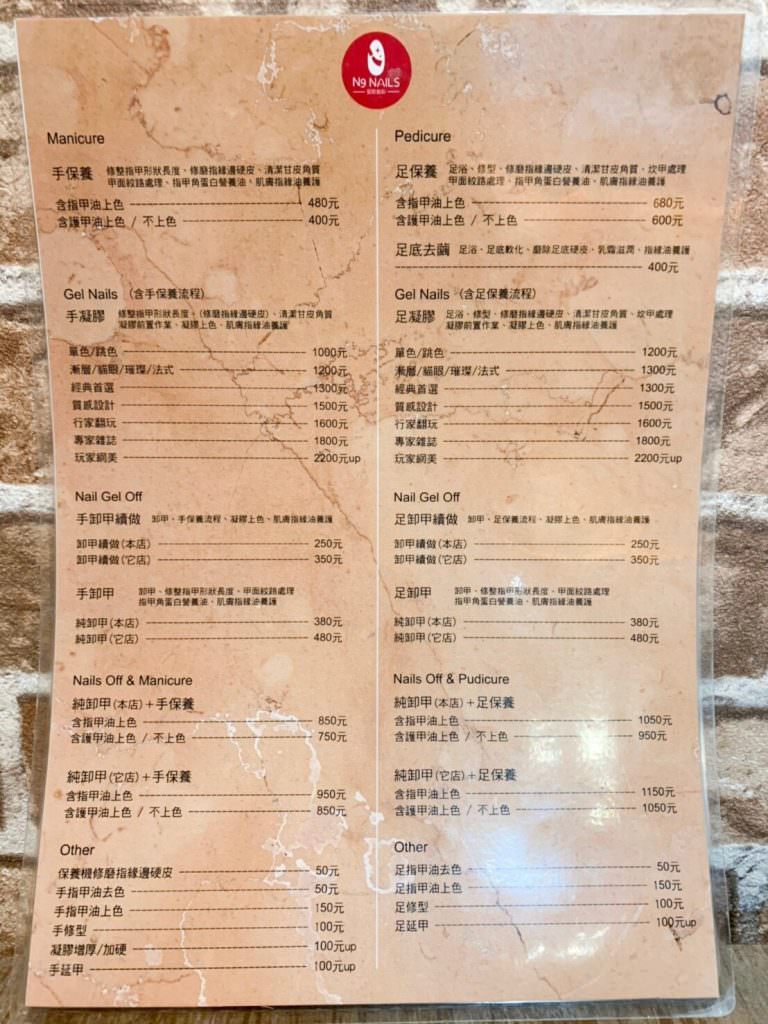 N9 NAILS
Manicure
手保養 修整指甲形狀長度、修磨指緣邊硬皮、清潔甘皮角質
甲面紋路處理、指甲角蛋白營養油、肌膚指緣油養護
含指甲油上色 480元
含護甲油上色 / 不上色 400元
Gel Nails (含手保養流程)
手凝膠 修整指甲形狀長度、(修磨指緣邊硬皮)、清潔甘皮角質
凝膠前置作業、凝膠上色、肌膚指緣油養護
單色/跳色 1000元
漸層/貓眼/璀璨/法式 1200元
經典首選 1300元
質感設計 1500元
行家翻玩 1600元
專家雜誌 1800元
玩家網美 2200元up
Nail Gel Off
手卸甲續做 卸甲、手保養流程、凝膠上色、肌膚指緣油養護
卸甲續做(本店) 250元
卸甲續做(它店) 350元
手卸甲 卸甲、修整指甲形狀長度、甲面紋路處理
指甲角蛋白營養油、肌膚指緣油養護
純卸甲(本店) 380元
純卸甲(它店) 480元
Nails Off & Manicure
純卸甲(本店)+手保養
含指甲油上色 850元
含護甲油上色 / 不上色 750元
純卸甲(它店)+手保養
含指甲油上色 950元
含護甲油上色 / 不上色 850元
Other
保養機修磨指緣邊硬皮 50元
手指甲油去色 50元
手指甲油上色 150元
手修型 100元
凝膠增厚/加硬 100元up
手延甲 100元up
Pedicure
足保養 足浴、修型、修磨指緣邊硬皮、清潔甘皮角質、崁甲處理
甲面紋路處理、指甲角蛋白營養油、肌膚指緣油養護
含指甲油上色 680元
含護甲油上色 / 不上色 600元
足底去繭 足浴、足底軟化、磨除足底硬皮、乳霜滋潤、指緣油養護
400元
Gel Nails (含足保養流程)
足凝膠 足浴、修型、修磨指緣邊硬皮、清潔甘皮角質、崁甲處理
凝膠前置作業、凝膠上色、肌膚指緣油養護
單色/跳色 1200元
漸層/貓眼/璀璨/法式 1300元
經典首選 1300元
質感設計 1500元
行家翻玩 1600元
專家雜誌 1800元
玩家網美 2200元up
Nail Gel Off
足卸甲續做 卸甲、足保養流程、凝膠上色、肌膚指緣油養護
卸甲續做(本店) 250元
卸甲續做(它店) 350元
足卸甲 卸甲、修整指甲形狀長度、甲面紋路處理
指甲角蛋白營養油、肌膚指緣油養護
純卸甲(本店) 380元
純卸甲(它店) 480元
Nails Off & Pudicure
純卸甲(本店)+足保養
含指甲油上色 1050元
含護甲油上色 / 不上色 950元
純卸甲(它店)+足保養
含指甲油上色 1150元
含護甲油上色 / 不上色 1050元
Other
足指甲油去色 50元
足指甲油上色 150元
足修型 100元
足延甲 100元up